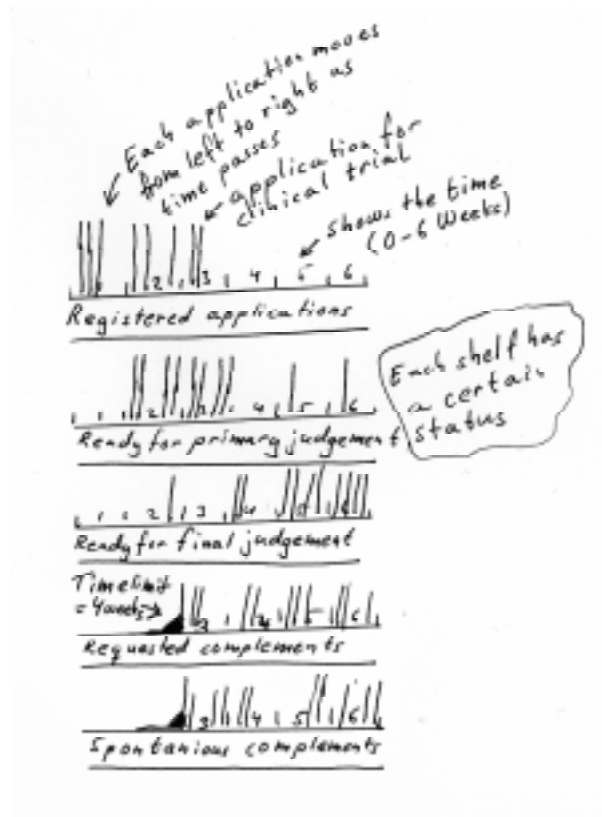 Each application moves
from left to right as
time passes
application for
clinical trial
shows the time
(0-6 Weeks)
2 3 4 5 6
Registered applications
Each shelf has
a certain
status
2 3 4 5 6
Ready for primary judgement
2 3 4 5 6
Ready for final judgement
Timelimit
= 4 weeks
3 4 5 6
Requested complements
3 4 5 6
Spontanious complements